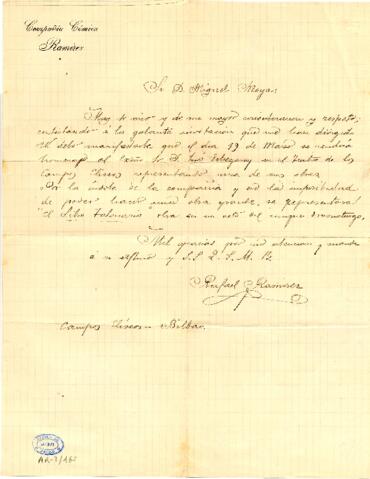 Compañía Cómica
Ramirez
Sr. D. Miguel Moya
Muy Sr mio y de mi mayor consideracion y respeto:
contestando á la galante invitacion que me han dirigido
debo manifestarle que el dia 19 de Marzo se rendirá
homenage al Exmo Sr. D. José Echegaray en el Teatro de los
Campos Eliseos representando una de sus obras
Por la indole de la compañia y la imposibilidad
de poder hacer una obra grande, se representará
"El Libro talonario" obra en un acto del insigne dramaturgo.
Mil gracias por su atencion y mande
á su afmo y S.S. Q. S. M. B.
Rafael Ramirez
Campos Eliseos - Bilbao.